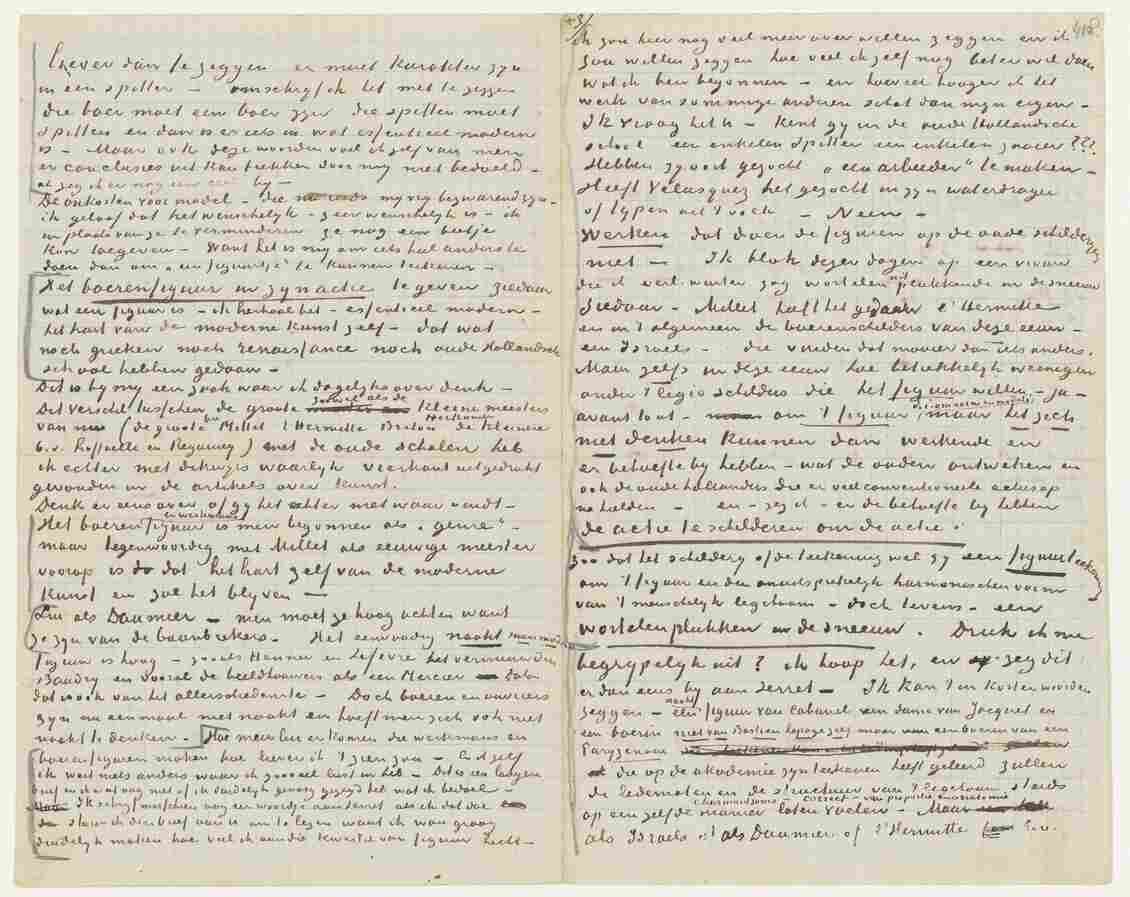 Liever dan te zeggen er moet karakter zyn
in een spitter — omschryf ik het met te zeggen
die boer moet een boer zyn die spitter moet
spitten en dan is er iets in wat essentieel modern
is — Maar ook deze woorden voel ik zelf van men
er conclusies uit kan trekken door my niet bedoeld —
al zeg ik er nog een by —
De onkosten voor model — die my vry bezwarend zyn
ik geloof dat het wenschelyk — zeer wenschelyk is — ik
in plaats van ze te verminderen ze nog een beetje
kon toegeven — Want het is my om iets heel anders te
doen dan om "een figuurtje" te kunnen teekenen —
Het boerenfiguur in zyn actie te geven ziedaar
wat een figuur is — ik herhaal het — essentieel modern —
het hart van de moderne kunst zelf — dat wat
noch grieken noch renaissance noch oude Hollandsche
school hebben gedaan —
Dit is by my een zaak waar ik dagelyks over denk —
Dit verschil tusschen de groote zoowel als de kleine meesters
van nu (de groote b.v. Millet Lhermitte Breton de kleinere
b.v. Raffaelli en Regamey) met de oude scholen heb
ik echter niet dikwyls waarlyk vierkant uitgedrukt
gevonden in de artikels over kunst.
Denk er eens over of gy het echter niet waar vindt —
Het boeren en werkmans figuur is men begonnen als "genre" —
maar tegenwoordig met Millet als eeuwige meester
voorop is dat het hart zelf van de moderne
kunst en zal het blyven —
Lui als Daumier — men moet ze hoog achten want
ze zyn van de baanbrekers. Het eenvoudig naakt maar moderne
figuur is hoog — zooals Henner en Lefevre het vernieuwden
Baudry en vooral de beeldhouwers als een Mercier Dalou
dat is ook van het allerschoonste — Doch boeren en ouvriers
zyn nu eenmaal niet naakt en hoeft men zich ook niet
naakt te denken. Hoe meer lui er komen die werkmans en
boerenfiguren maken hoe liever ik 't zien zou — En ik zelf
ik weet niets anders waar ik zooveel lust in heb — Dit is een langen
brief en ik weet nog niet of ik duidelyk genoeg gezegd heb wat ik bedoel —
Ik schryf misschien nog een woordje aan Serret als ik dat doe
stuur ik dien brief aan u om te lezen want ik wou graag
duidelyk maken hoe veel ik aan die kwestie van figuur hecht —
+3/
Ik zou hier nog veel meer over willen zeggen en ik 418
zou willen zeggen hoe veel ik zelf nog beter wil doen
wat ik ben begonnen — en hoeveel hooger ik het
werk van sommige anderen schat dan myn eigen —
Ik vraag het u — kent gy in de oude Hollandsche
school een enkelen spitter een enkelen zaaier ???
Hebben zy ooit gezocht "een arbeider" te maken —
Heeft Velasquez het gezocht in zyn waterdrager
of typen uit 't volk — Neen —
Werken dat doen de figuren op de oude schilderyen
niet — Ik blok dezer dagen op een vrouw
die ik verl. winter zag wortelen plukkende in de sneeuw
Ziedaar — Millet heeft het gedaan Lhermitte
en in 't algemeen de boerenschilders van deze eeuw —
een Israels — die vinden dat mooier dan iets anders.
Maar zelfs in deze eeuw hoe betrekkelyk weinigen
onder 't legio schilders die het figuur willen — ja —
avant tout — om 't figuur, maar het zich
niet denken kunnen dan werkende en
er behoefte by hebben — wat de ouden ontweken en
ook de oude hollanders die er veel conventioneele acties op
na hielden — en — zeg ik — er de behoefte by hebben
de actie te schilderen om de actie.
Zoo dat het schildery of de teekening wel zy een figuurteekening
om 't figuur en den onuitsprekelyk harmonieuzen vorm
van 't menschelyk ligchaam — doch tevens — een
wortelenplukken in de sneeuw. Druk ik me
begrypelyk uit? ik hoop het, en zeg dit
er dan eens by aan Serret — Ik kan 't in korte woorden
zeggen — een naakt figuur van Cabanel een dame van Jacquet en
een boerin niet van Bastien Lepage zelf maar van een boerin van een
Paryzenaar
die op de akademie zyn teekenen heeft geleerd zullen
de ledematen en de structuur van 't ligchaam steeds
op een zelfde manier laten voelen — Maar
charmant soms correct in proportie en anatomie
als Israels of als Daumier of Lhermitte b.v.